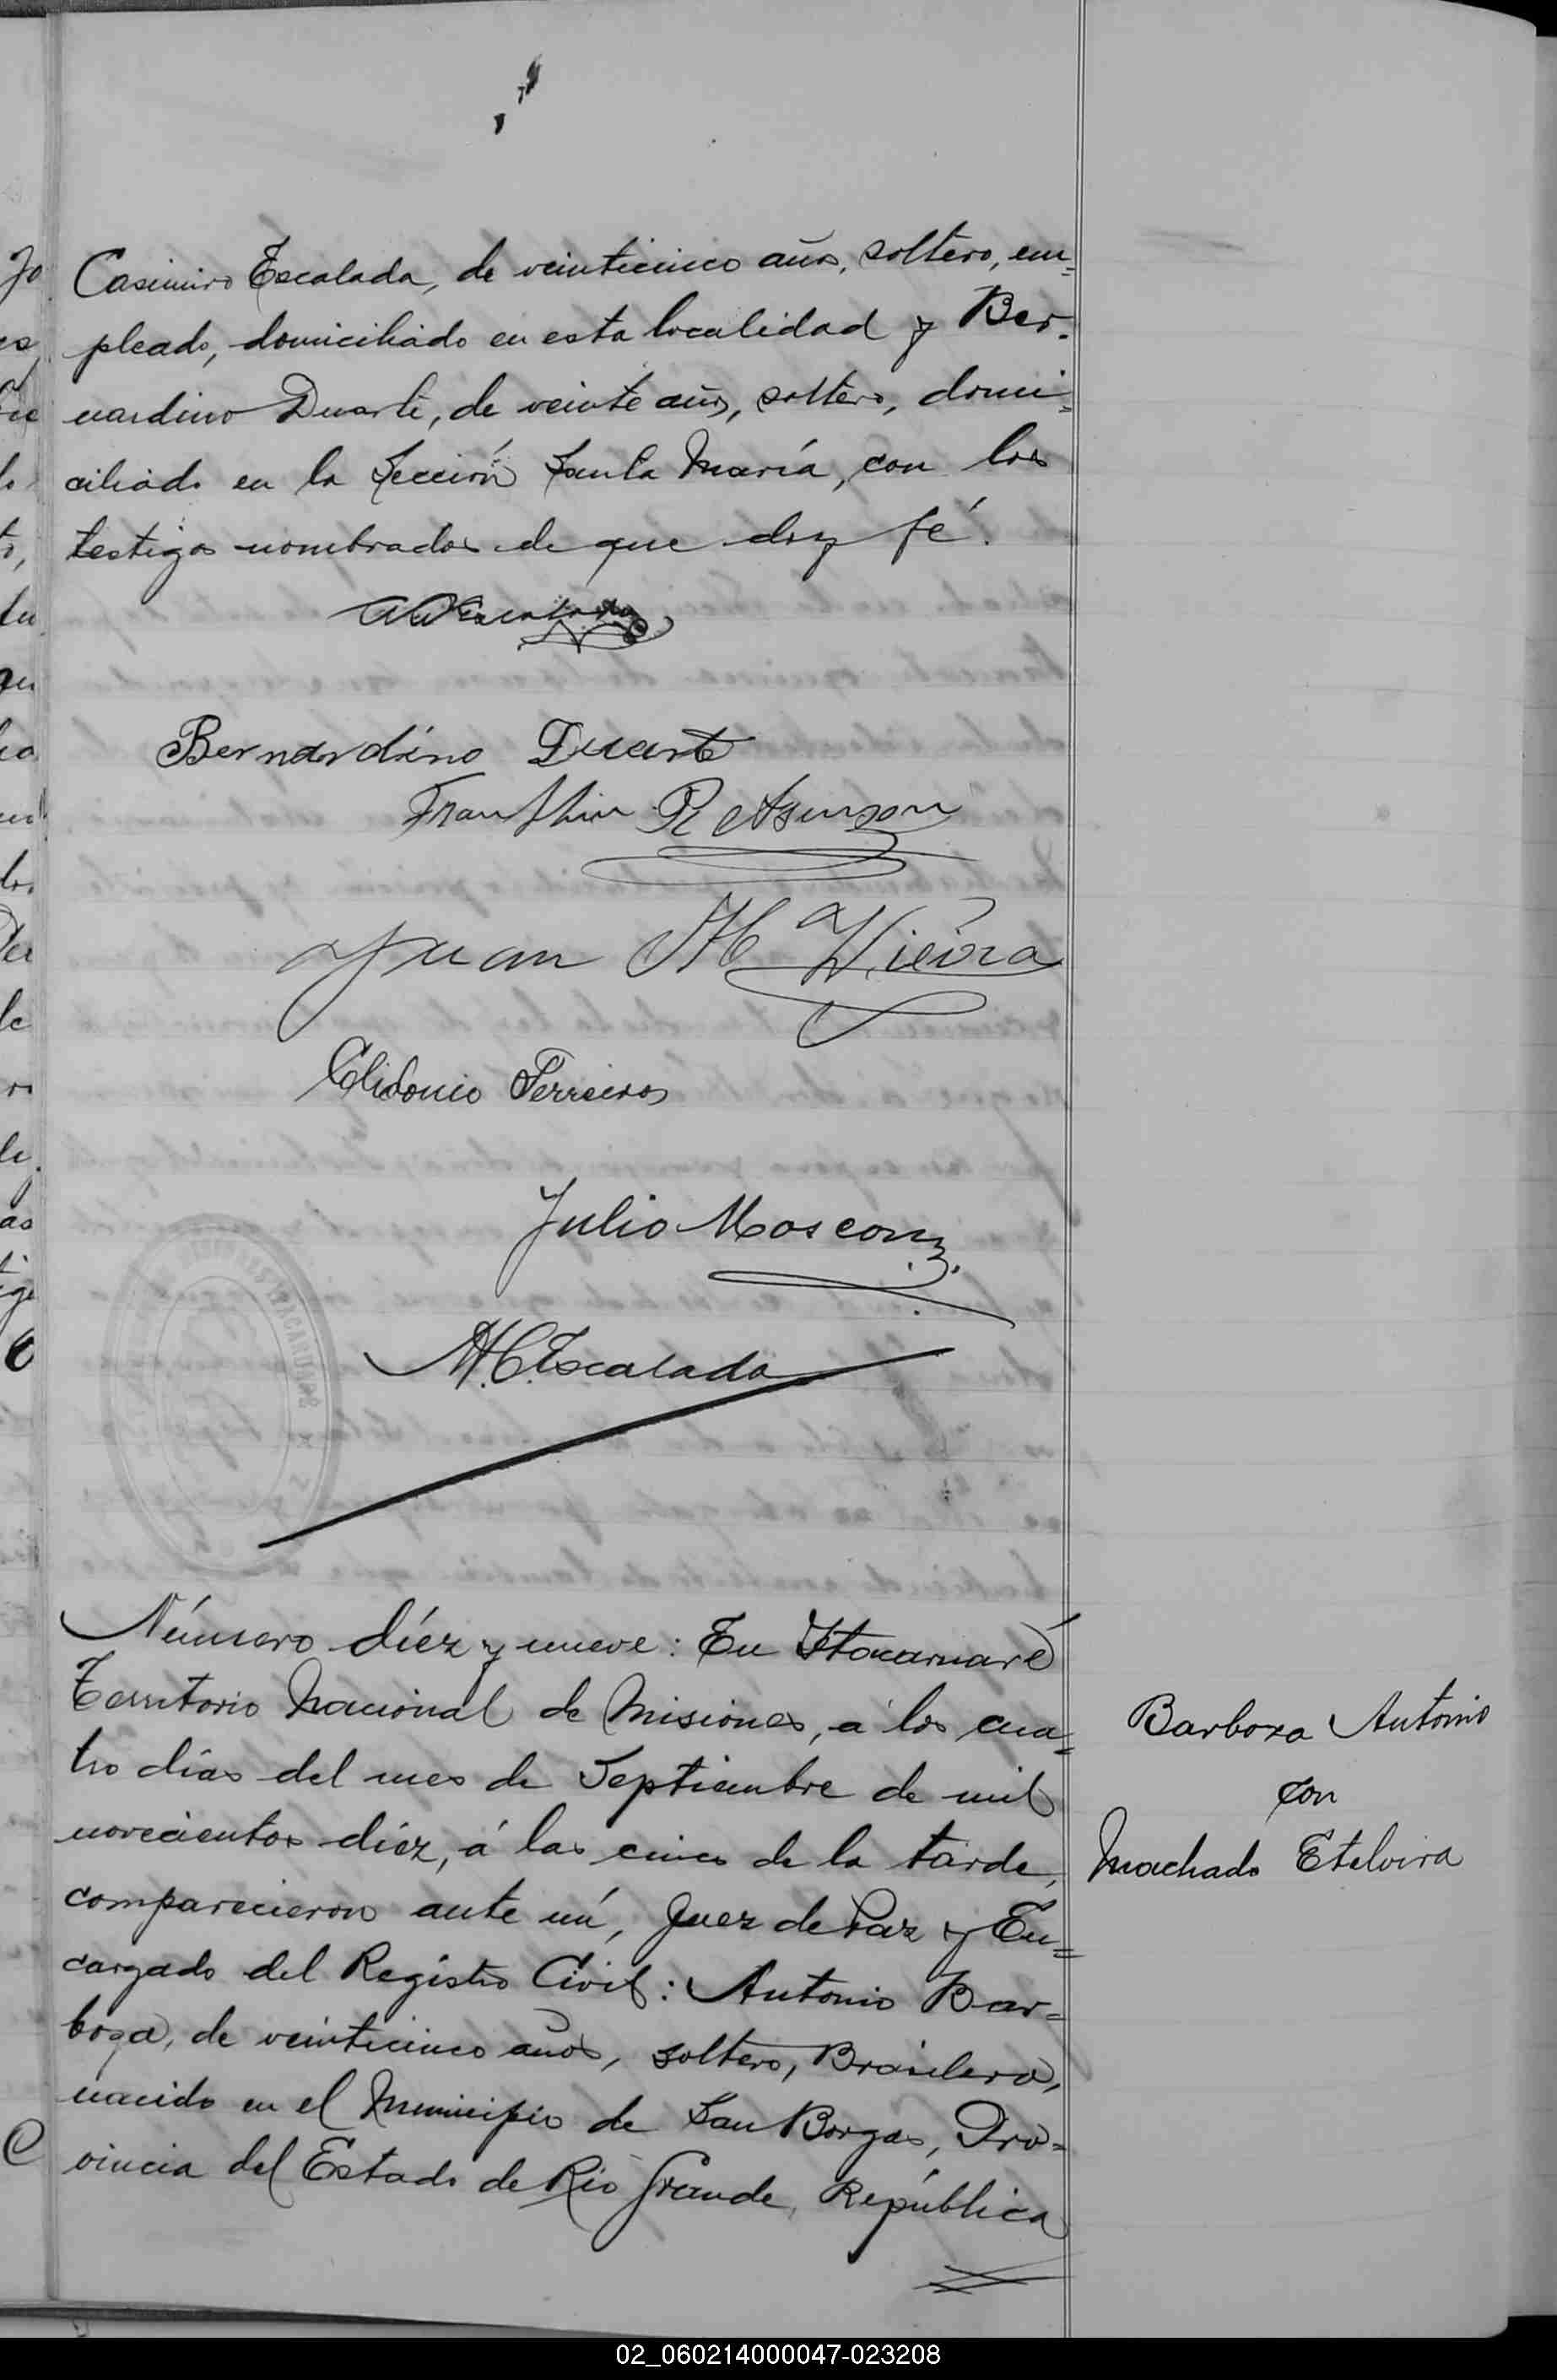 Casimiro Escalada, de veinticinco años, soltero, em=
pleado, domiciliado en esta localidad y Ber-
nardino Duarte, de veinte años, soltero, domi=
ciliado en la Sección Santa María, con los
testigos nombrados de que doy fé.
Bernardino Duarte
Franklin R Asunson
Juan M Vieira
Celidonio Ferreira
Julio Moscon
M. C. Escalada
Número diez y nueve: En Itacaruaré
Territorio Nacional de Misiones, á los cua=
tro días del mes de Septiembre de mil
novecientos diez, á las cinco de la tarde,
comparecieron ante mí, Juez de Paz y En=
cargado del Registro Civil: Antonio Bar=
boza, de veinticinco años, soltero, Brasilero,
nacido en el Municipio de San Borgas, Pro=
vincia del Estado de Rio Grande, República
Barboza Antonio
con
Machado Etelvira
02_060214000047-023208